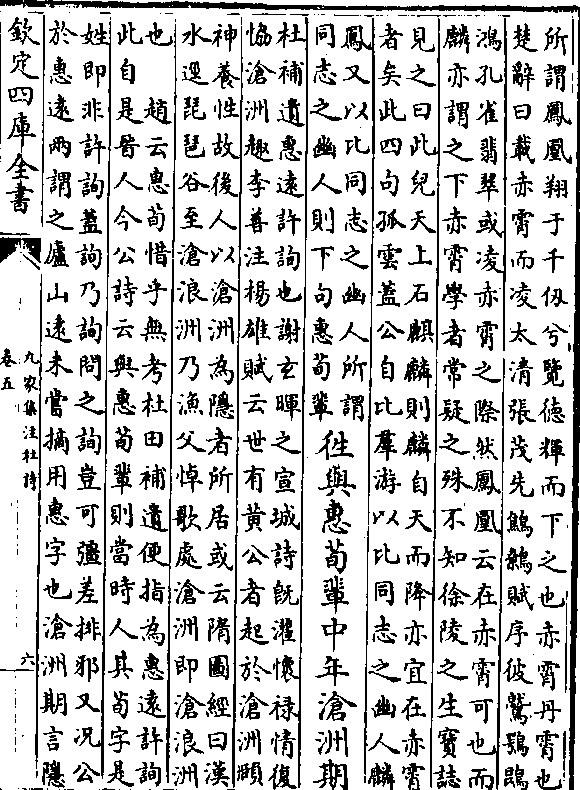 所謂鳳凰翔于千仞兮覽德輝而下之也赤霄丹霄也
楚辭曰載赤霄而凌太清張茂先鷦鷯賦序彼鷲鶚鵾
鴻孔雀翡翠或凌赤霄之際然鳳凰云在赤霄可也而
麟亦謂之下赤霄學者常疑之殊不知徐陵之生寶誌
見之曰此兒天上石麒麟則麟自天而降亦宜在赤霄
者矣此四句孤雲蓋公自比羣游以比同志之幽人麟
鳳又以比同志之幽人所謂
同志之幽人則下句惠荀輩
往與惠荀輩中年滄洲期
杜補遺惠遠許詢也謝玄暉之宣城詩旣懽懷祿情復
協滄洲趣李善注楊雄賦云世有黃公者起於滄洲頤
神養性故後人以滄洲為隱者所居或云隋圖經曰漢
水逕琵琶谷至滄浪洲乃漁父悼歌處滄洲即滄浪洲
也 趙云惠荀惜乎無考杜田補遺便指為惠遠許詢
此自是晉人今公詩云與惠荀輩則當時人其荀字是
姓即非許詢蓋詢乃詢問之詢豈可彊差排邪又况公
於惠遠两謂之廬山遠未嘗摘用惠字也滄洲期言隱
欽定四庫全書
九家集注杜詩
卷五
六